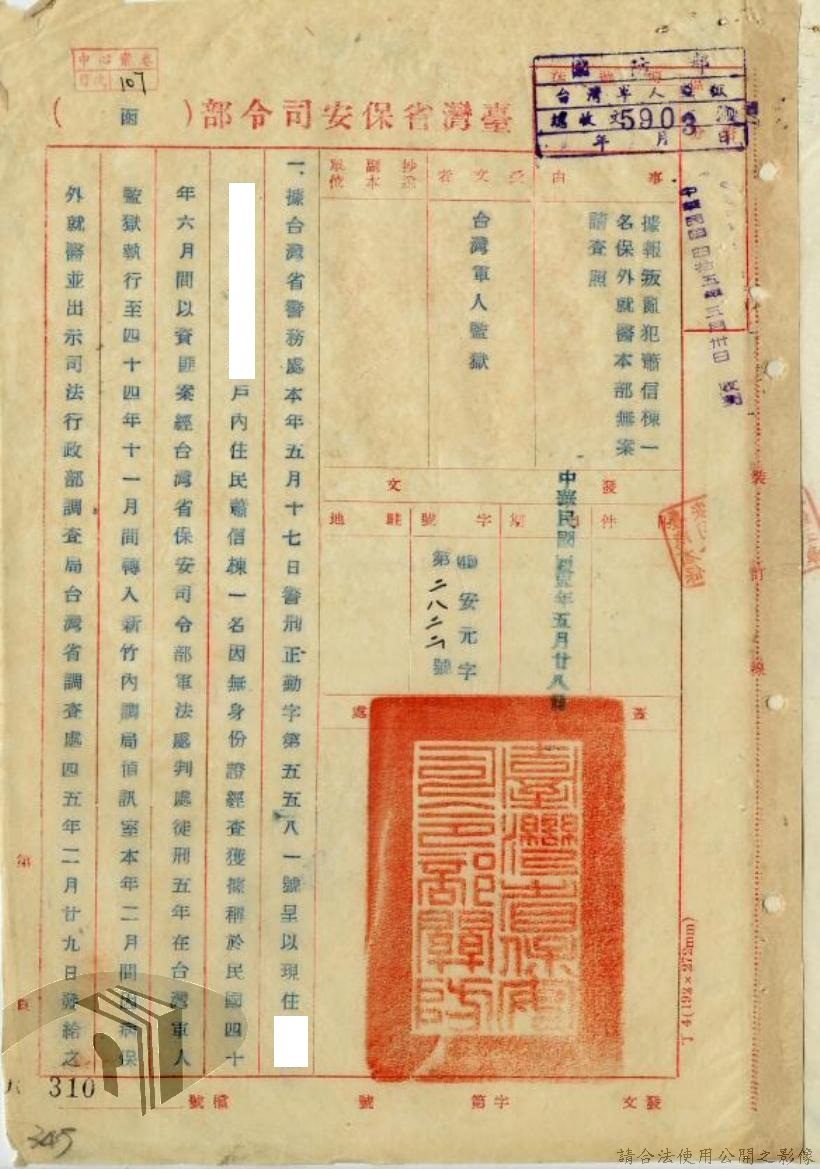 中心案卷
目次 107
臺灣省保安司令部(函)
國防部
台灣軍人監獄
總收文5903號
年 月 日
事由
據報叛亂犯蕭信棟一
名保外就醫本部無案
請查照
中華民國四拾五年五月卅日 收到
受文者
台灣軍人監獄
抄送副本單位
發文
附件
日期
中華民國肆拾伍年五月廿八日
字號
安元字
第二八二二號
駐地
蓋
處
臺灣省保安司令部關防
一、據台灣省警務處本年五月十七日警刑正勤字第五五八一號呈以現住
戶內住民蕭信棟一名因無身份證經查獲據稱於民國四十
年六月間以資匪案經台灣省保安司令部軍法處判處徒刑五年在台灣軍人
監獄執行至四十四年十一月間轉入新竹內調局偵訊室本年二月間因病保
外就醫並出示司法行政部調查局台灣省調查處四五年二月廿九日發給之
裝
訂
線
丁4(192×272mm)
第
頁
310
345
發文 字第 號 檔號
請合法使用公開之影像